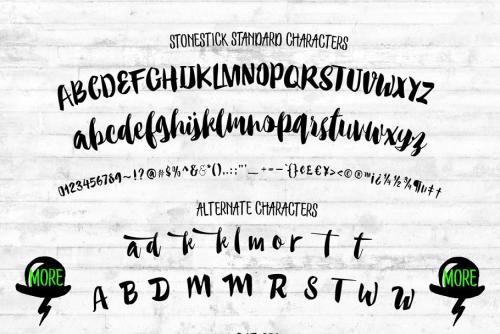 STONESTICK STANDARD CHARACTERS
ABCDEFGHIJKLMNOPQRSTUVWXYZ
abcdefghijklmnopqrstuvwxyz
0123456789~!?@#$%^&*()..::"'_-+=-`{}¢£€¥><©®™¡¿¼½¾¶¤‡±
ALTERNATE CHARACTERS
a d k k l m o r t t
MORE
MORE
A B D M M R S T W W